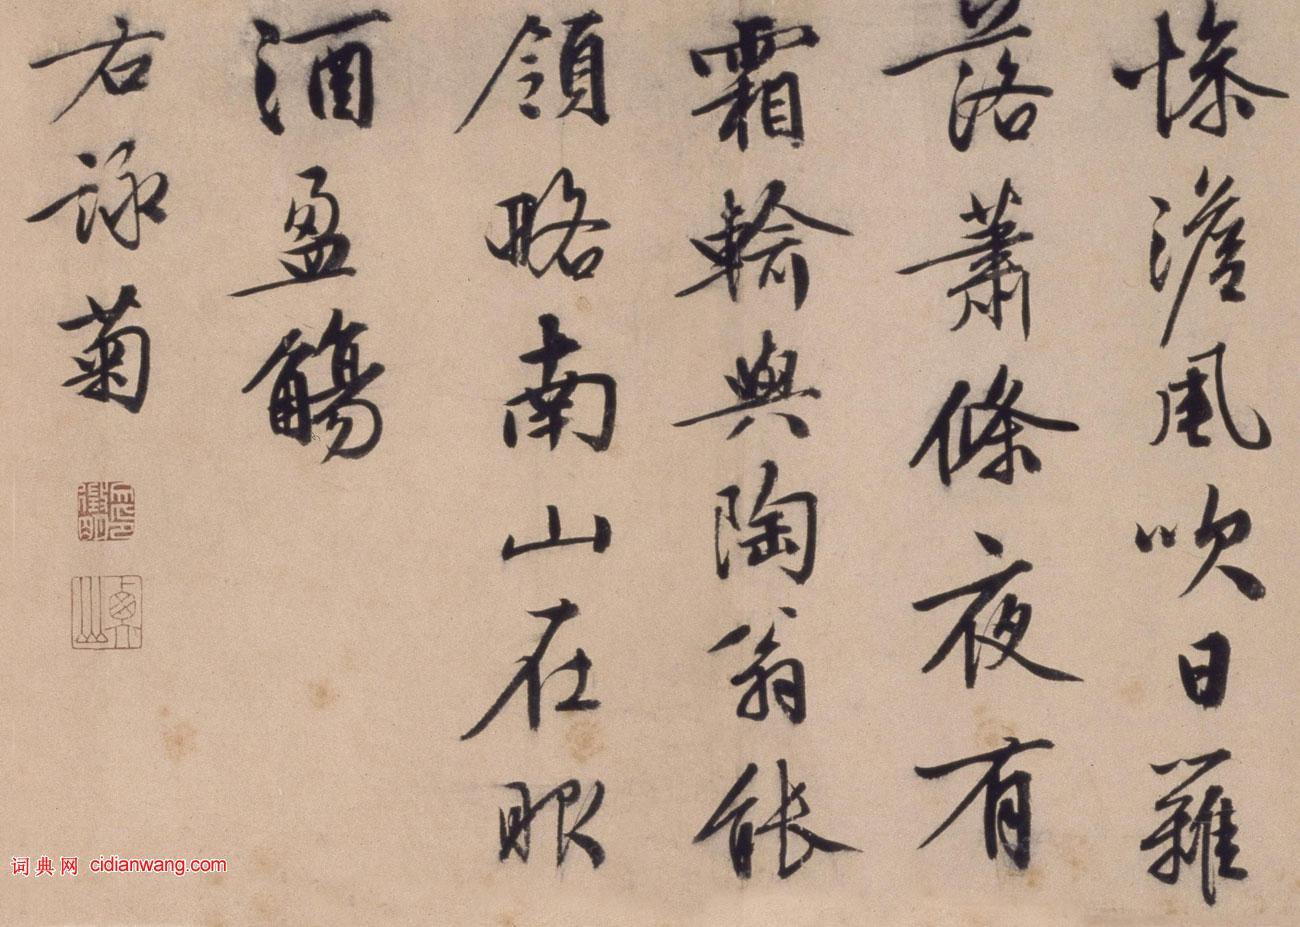 慘澹風吹日籬
落蕭條夜有
霜輸與陶翁能
領略南山在眼
酒盈觴
右詠菊
文徵明印
衡山
词典网 cidianwang.com